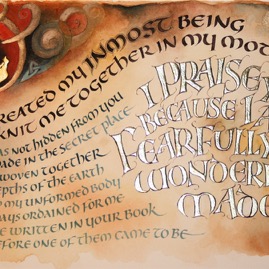 REATED MY INMOST BEING
KNIT ME TOGETHER IN MY MOT
AS NOT HIDDEN FROM YOU
ADE IN THE SECRET PLACE
WOVEN TOGETHER
EPTHS OF THE EARTH
MY UNFORMED BODY
AYS ORDAINED FOR ME
E WRITTEN IN YOUR BOOK
EFORE ONE OF THEM CAME TO BE
I PRAISE
BECAUSE I A
FEARFULLY
WONDER
MADE